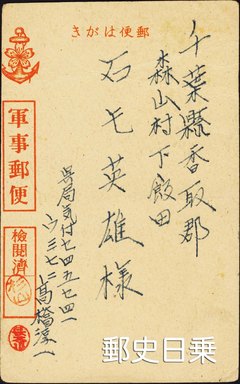 郵便はがき
千葉縣香取郡
森山村下飯田
石毛英雄様
呉局気付七四五七四一
ウ三七二
髙橋淳一
軍事郵便
検閲濟
郵史日乗